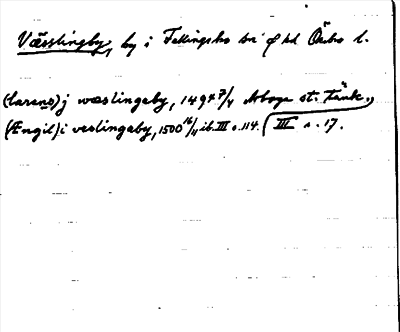 Vässlingby, by i Fellingsbro sn o. hd Örebro l.
(larens) j wæslingaby, 1497 7/4 Arboga st. Tänk.,
III s. 17.
(Ængil) i veslingaby, 1500 16/11 ib. III s. 114.